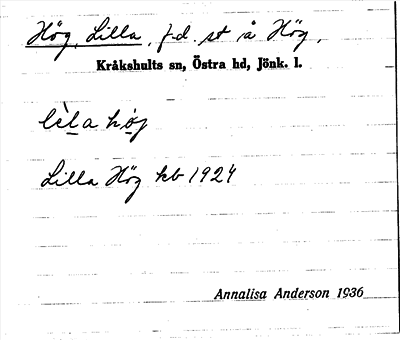 Hög, Lilla, f.d. st å Hög,
Kråkshults sn, Östra hd, Jönk. l.
lèla höj
Lilla Hög kb 1924
Annalisa Anderson 1936